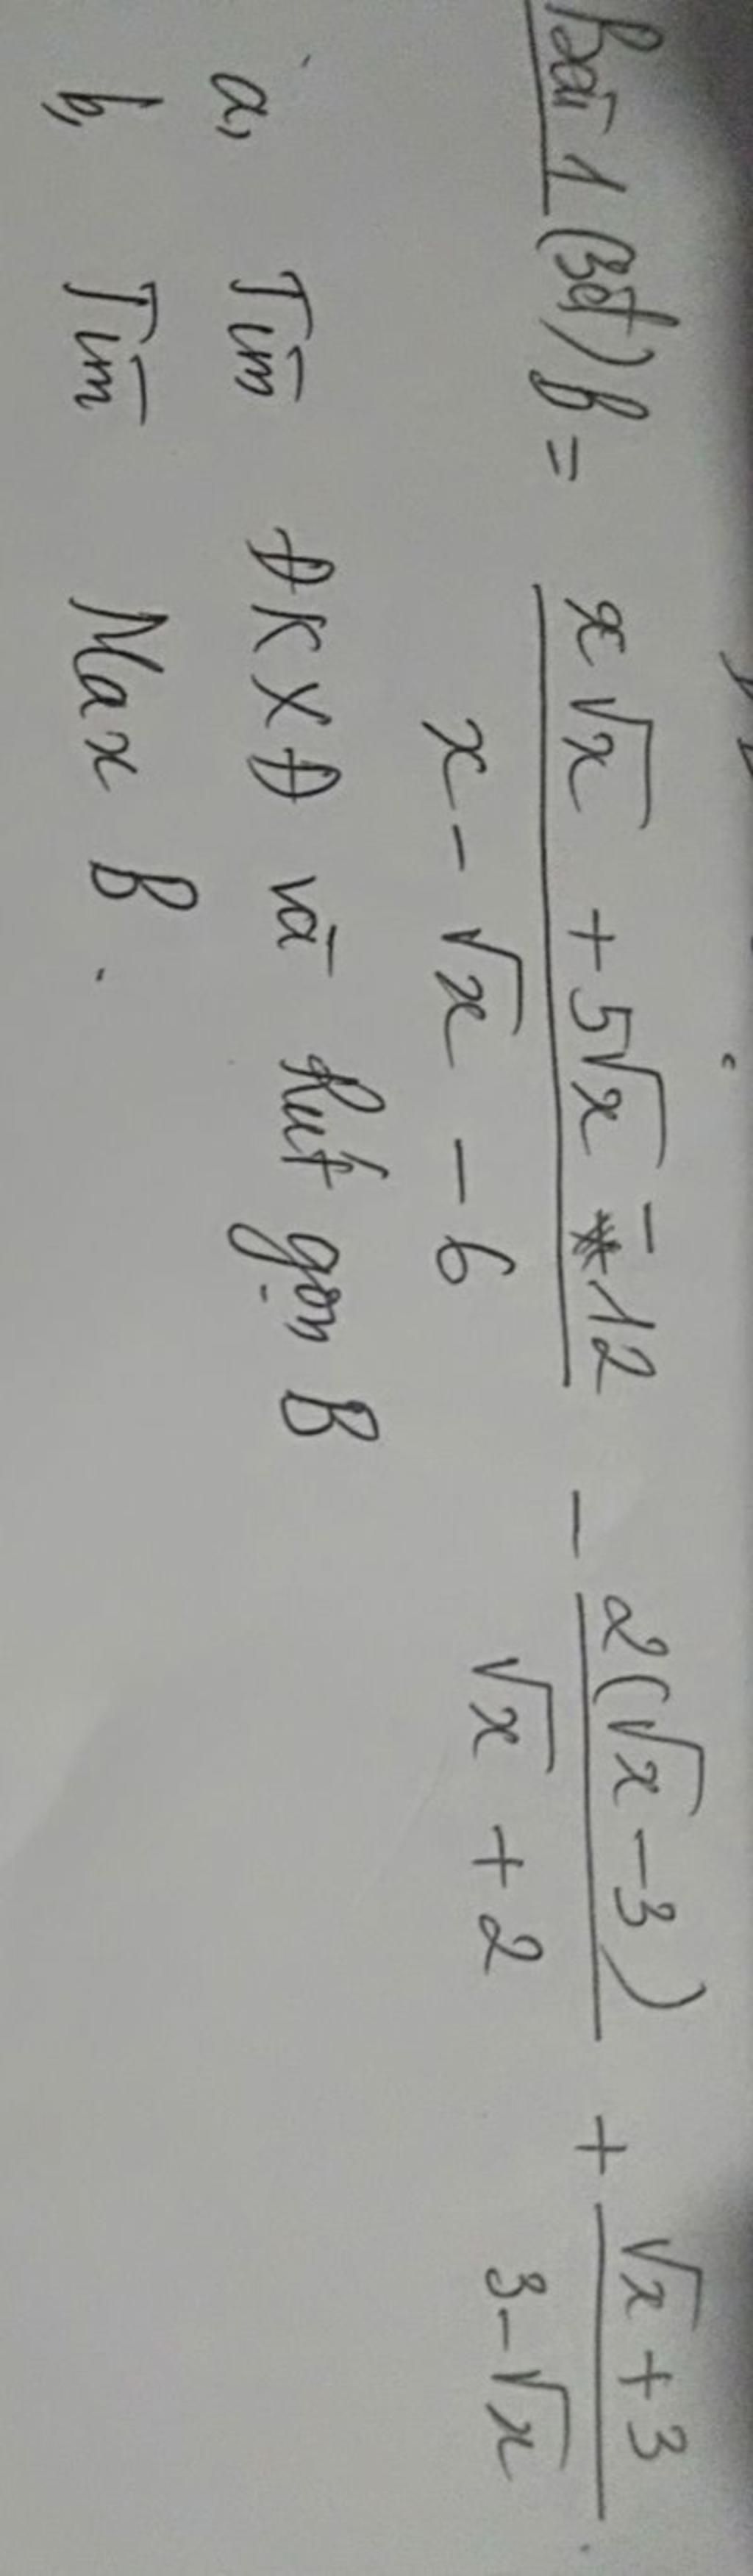 Bài 1 (3đ) B = \frac{x\sqrt{x} + 5\sqrt{x} - 12}{x - \sqrt{x} - 6} - \frac{2(\sqrt{x} - 3)}{\sqrt{x} + 2} + \frac{\sqrt{x} + 3}{3 - \sqrt{x}}.
a, Tìm ĐKXĐ và Rút gọn B
b, Tìm Max B.